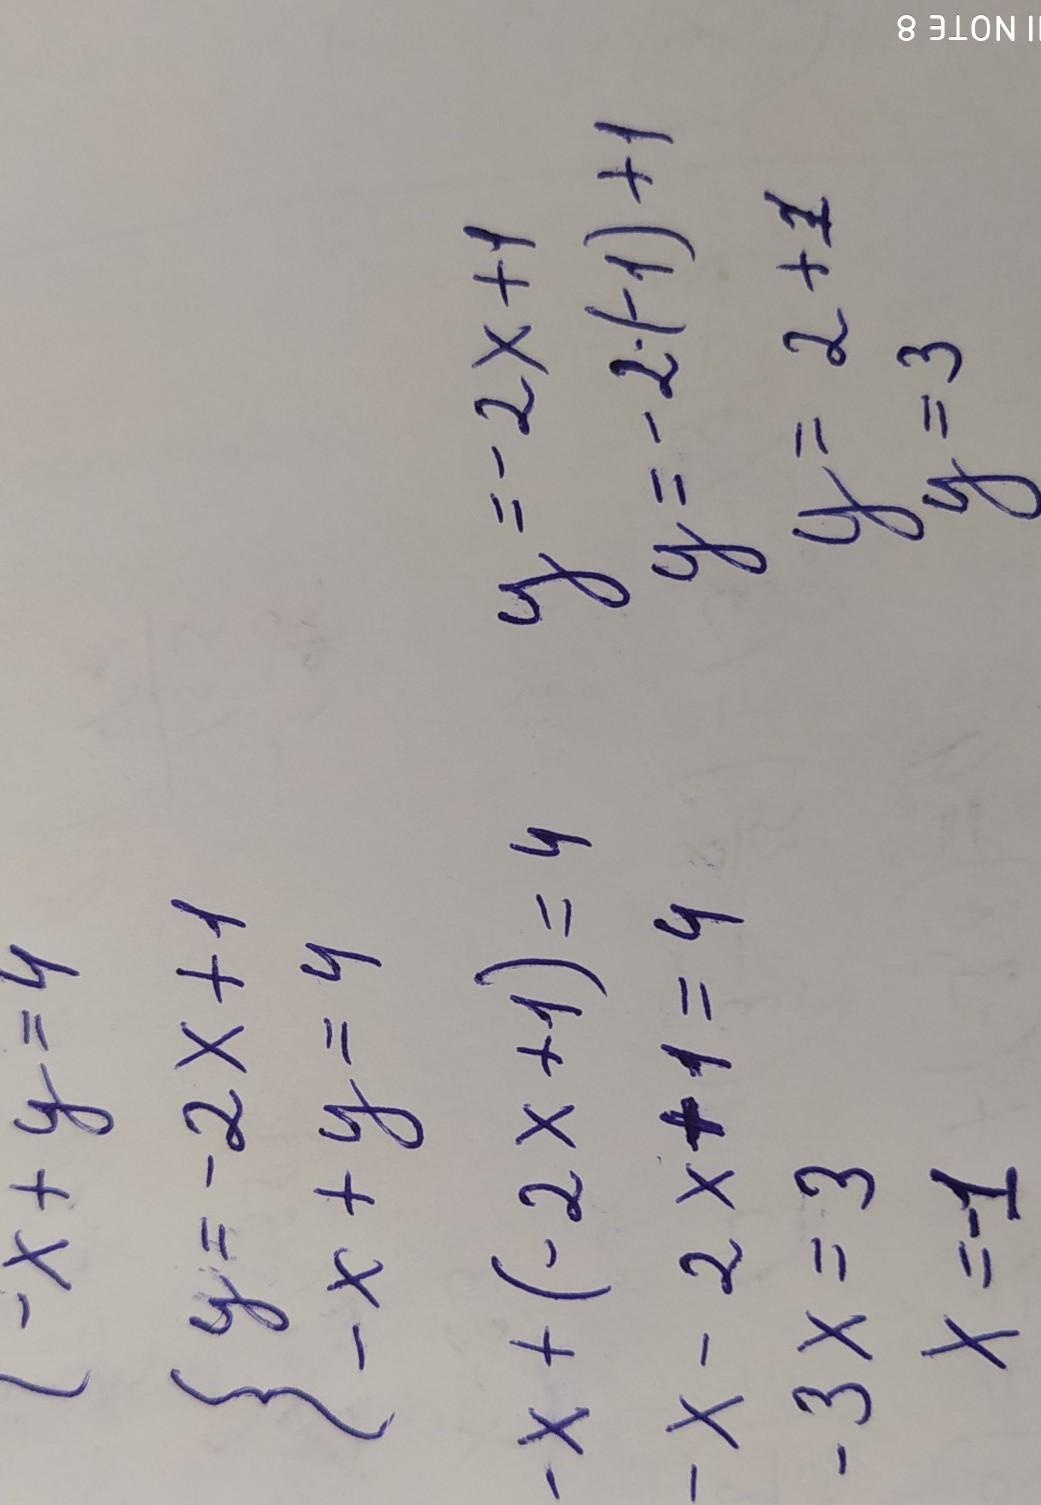 -x + y = 4
y = -2x + 1
-x + y = 4
-x + (-2x + 1) = 4
-x - 2x + 1 = 4
-3x = 3
x = -1
y = -2x + 1
y = -2·(-1) + 1
y = 2 + 1
y = 3
NOTE 8